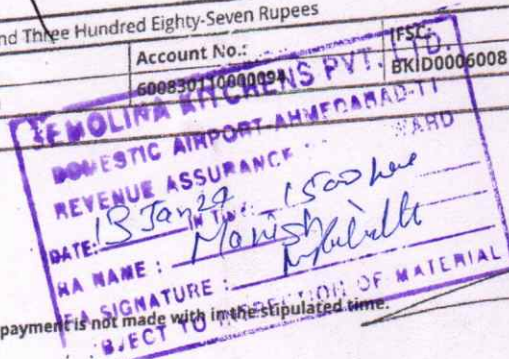 nd Three Hundred Eighty-Seven Rupees
Account No.: IFSC:
BKID0006008
SEMOLINA KITCHENS PVT. LTD.
DOMESTIC AIRPORT-AHMEDABAD-T1
REVENUE ASSURANCE WARD
DATE: 13 Jan 24 IN TIME: 1500 hrs
RA NAME : Manish
RA SIGNATURE :
SUBJECT TO INSPECTION OF MATERIAL
payment is not made with in the stipulated time.